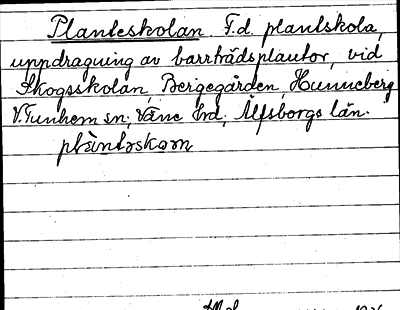 Planteskolan. F.d. plantskola,
uppdragning av barrträdsplantor, vid
Skogsskolan, Bergegården, Hunneberg
V.Tunhem sn, Väne hrd, Älfsborgs län.
plàntərskɷn